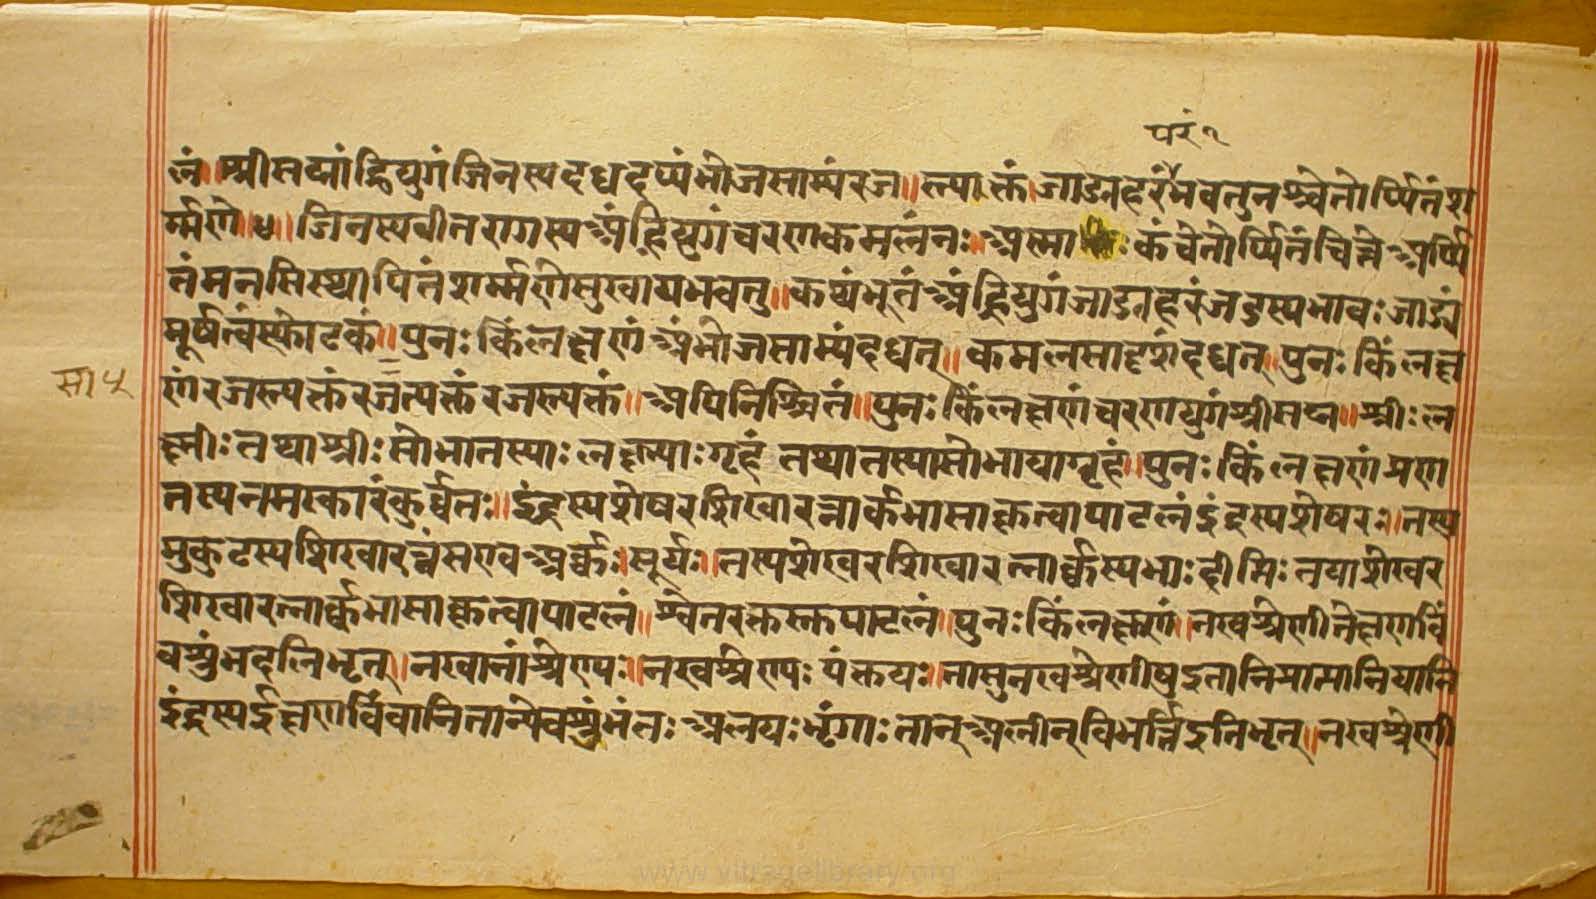 परं १
नं॥ श्रीसद्मांह्रियुगं जिनस्य दधदप्यंभोजसाम्यं रज॥ स्त्यक्तं। जाड्यहरं भवतु नश्चेतोर्प्पितं श
र्म्मणे॥४॥ जिनस्य वीतरागस्य अंह्रियुगं चरणकमलं नः॥ अस्मा कं चेतोर्प्पितं चित्ते अर्प्पि
तं मनसि स्थापितं शर्म्मणे सुखाय भवतु॥ कथंभूतं अंह्रियुगं जाड्यहरं जडस्य भावः जाड्यं
मूर्षत्वं स्फोटकं॥ पुनः किंलक्षणं अंभोजसाम्यं दधत्॥ कमलसादृशं दधत्॥ पुनः किंलक्ष
सा ५
णं रजस्त्यक्तं रजत्यक्तं रजस्त्यक्तं॥ अपि निश्चितं॥ पुनः किंलक्षणं चरणयुगं श्रीसद्म॥ श्रीः ल
क्ष्मीः तथा श्रीः सोभा तस्याः लक्ष्म्याः गृहं तथा तस्या सोभाया गृहं॥ पुनः किंलक्षणं प्रण
तस्य नमस्कारं कुर्व्वतः॥ इंद्रस्य शेषरशिखारत्नार्कभासा कृत्वा पाटलं इंद्रस्य शेषरः॥ तस्य
मुकुटस्य शिखारत्नं स एव अर्क्कः। सूर्यः॥ तस्य शेखरशिखारत्नार्क्कस्य भाः दीप्तिः तया शेखर
शिखारत्नार्क्कभासा कृत्वा पाटलं॥ श्वेतरक्तस्तु पाटलं॥ पुनः किंलक्षणं॥ नखश्रेणीतेक्षणबिं
बशुंभदलिभृत्॥ नखानां श्रेणयः॥ नखश्रेणयः पंक्तयः॥ तासु नखश्रेणीषु इतानि प्राप्तानि यानि
इंद्रस्य ईक्षणबिंबानि तान्येव शुंभंतः अलयः भृंगाः तान् अलीन् बिभर्त्ति इति भृत्॥ नखश्रेणी